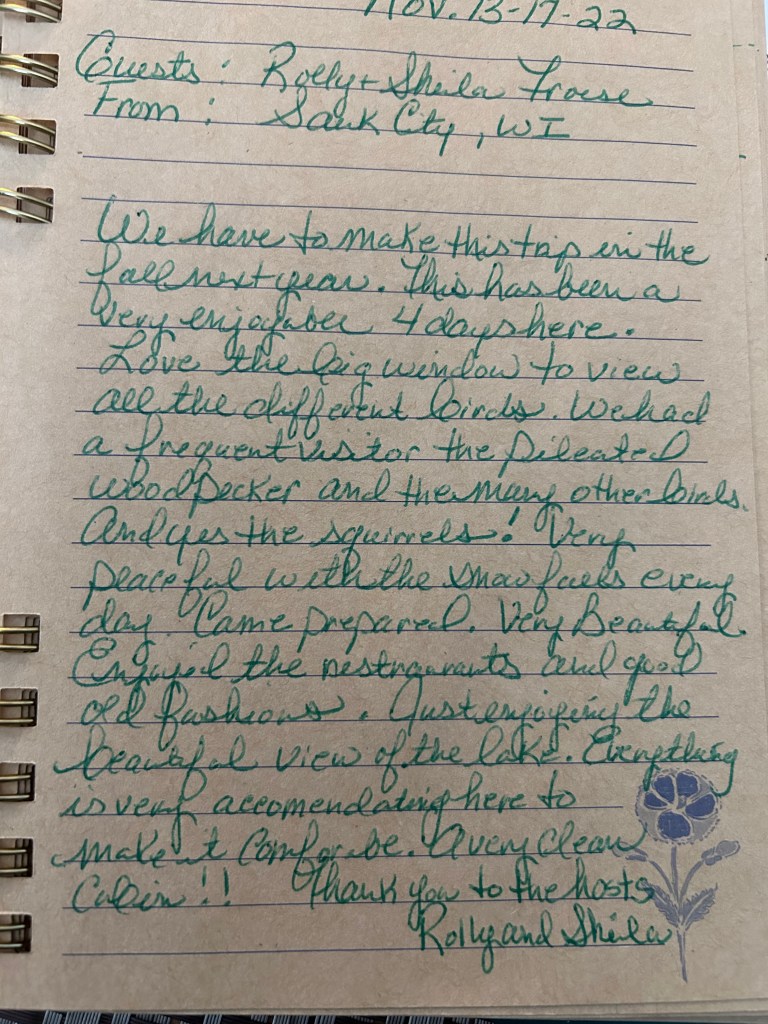 Nov. 13-17-22
Guests: Rolly + Sheila Froese
From: Sauk City, WI
We have to make this trip in the
fall next year. This has been a
very enjoyaber 4 days here.
Love the big window to view
all the different birds. We had
a frequent visitor the Pileated
woodpecker and the many other birds.
And yes the squirrels! Very
peaceful with the snow falls every
day. Came prepared. Very Beautiful.
Enjoyed the restraurants and good
old fashions. Just enjoying the
beautiful view of the lake. Everything
is very accomendating here to
make it Comforbe. A very clean
Cabin!! Thank you to the hosts
Rolly and Sheila